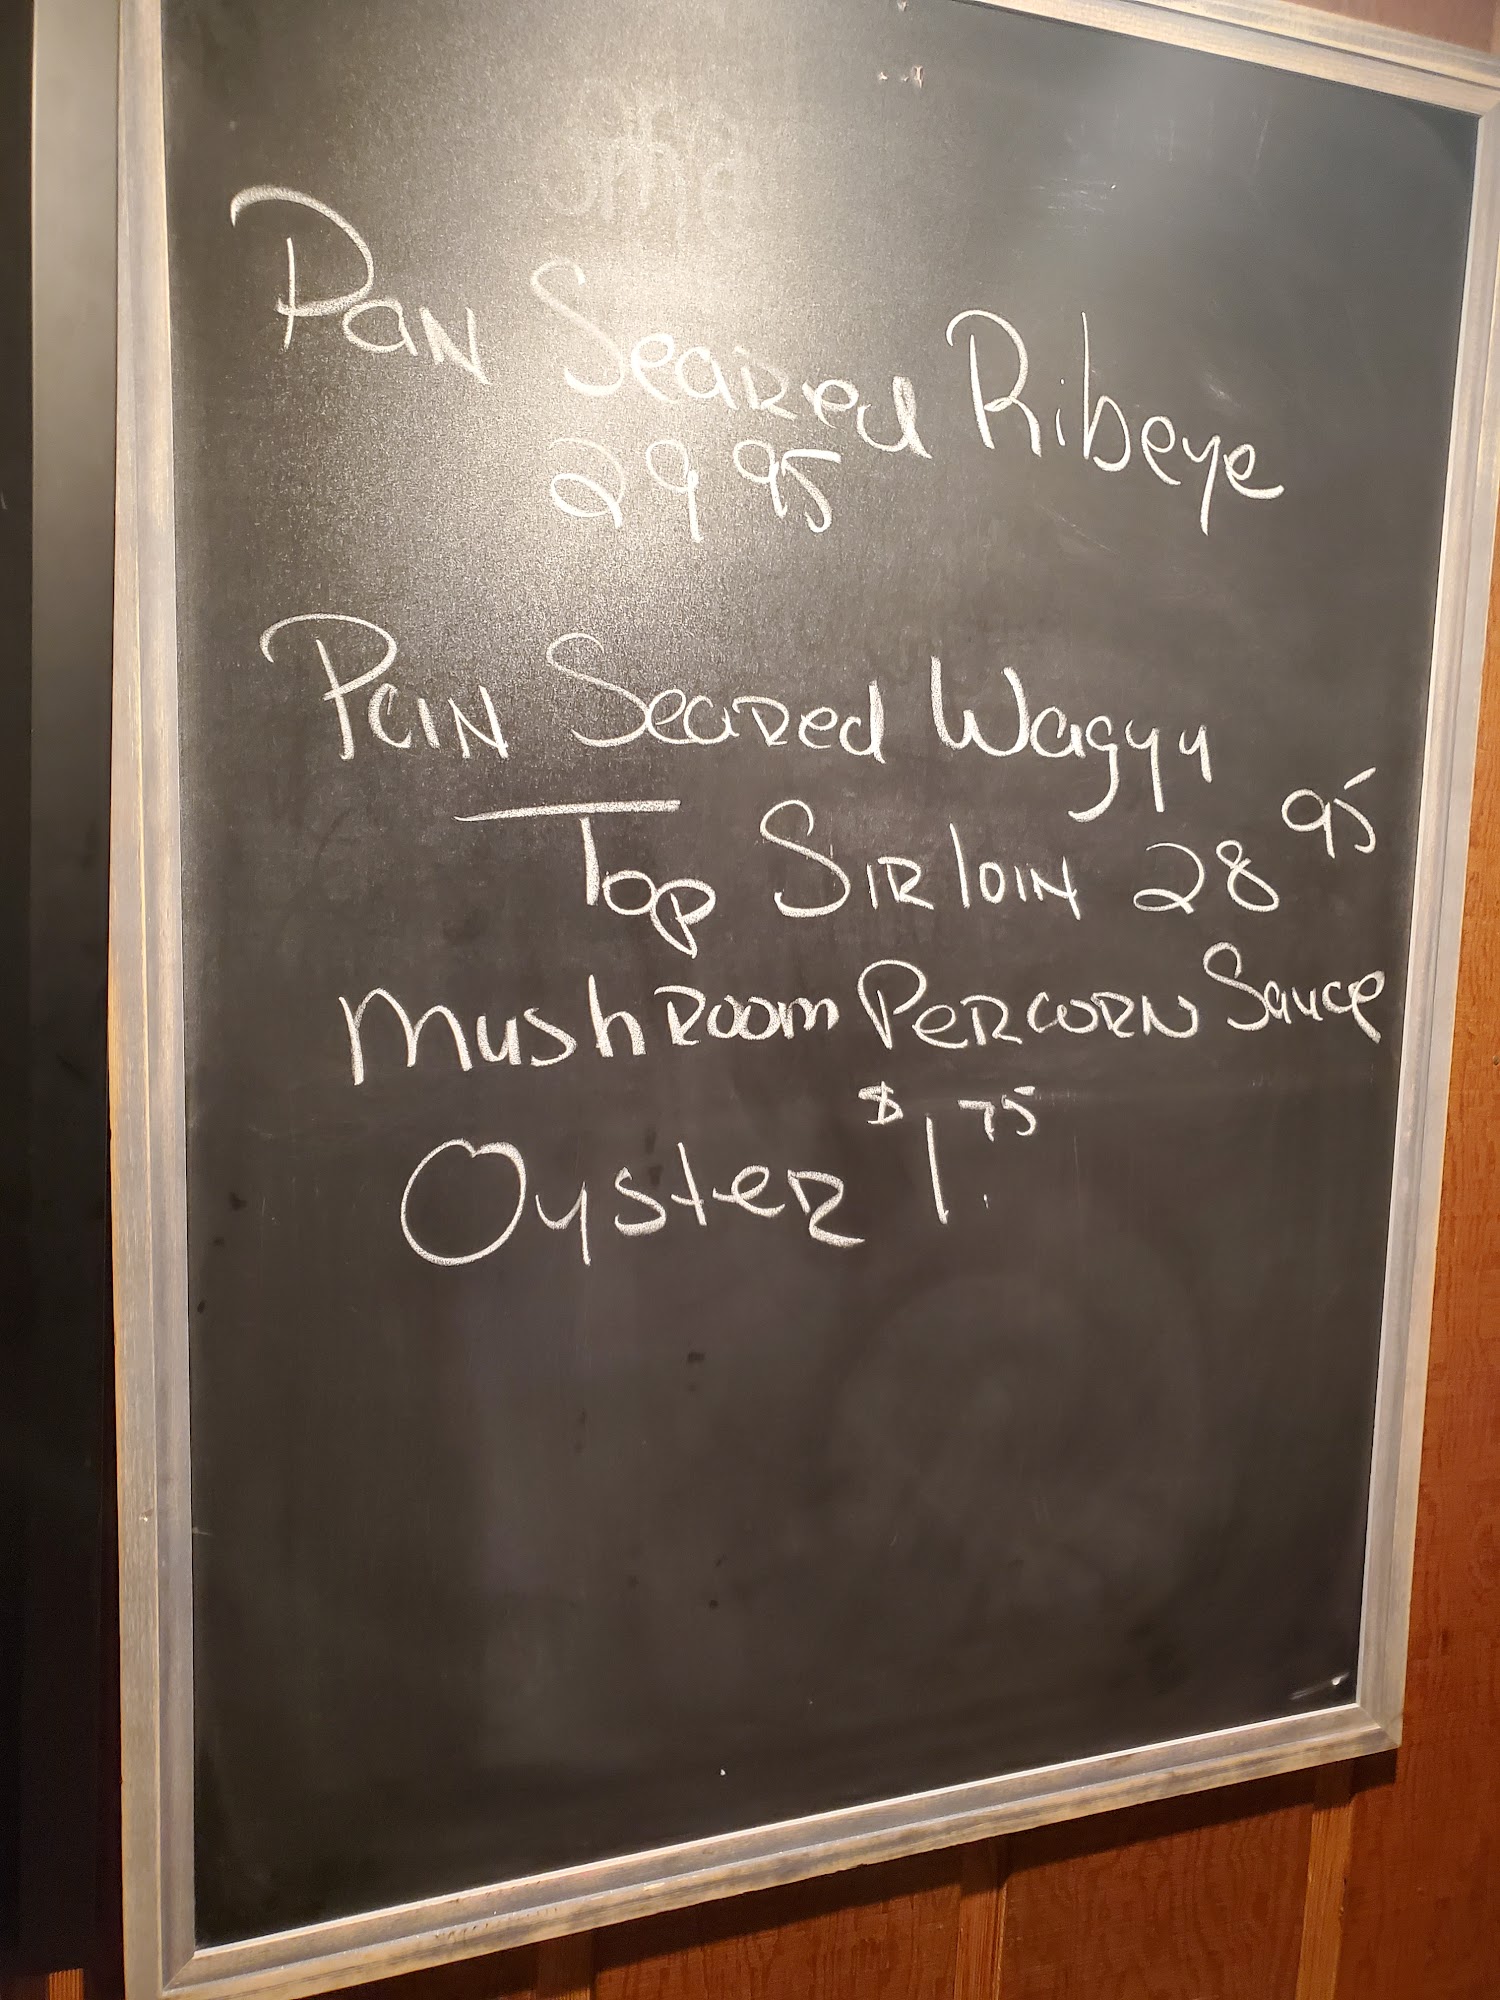 Pan Seared Ribeye
29 95
Pan Seared Wagyu
Top Sirloin 28 95
Mushroom Percorn Sauce
Oyster $1.75